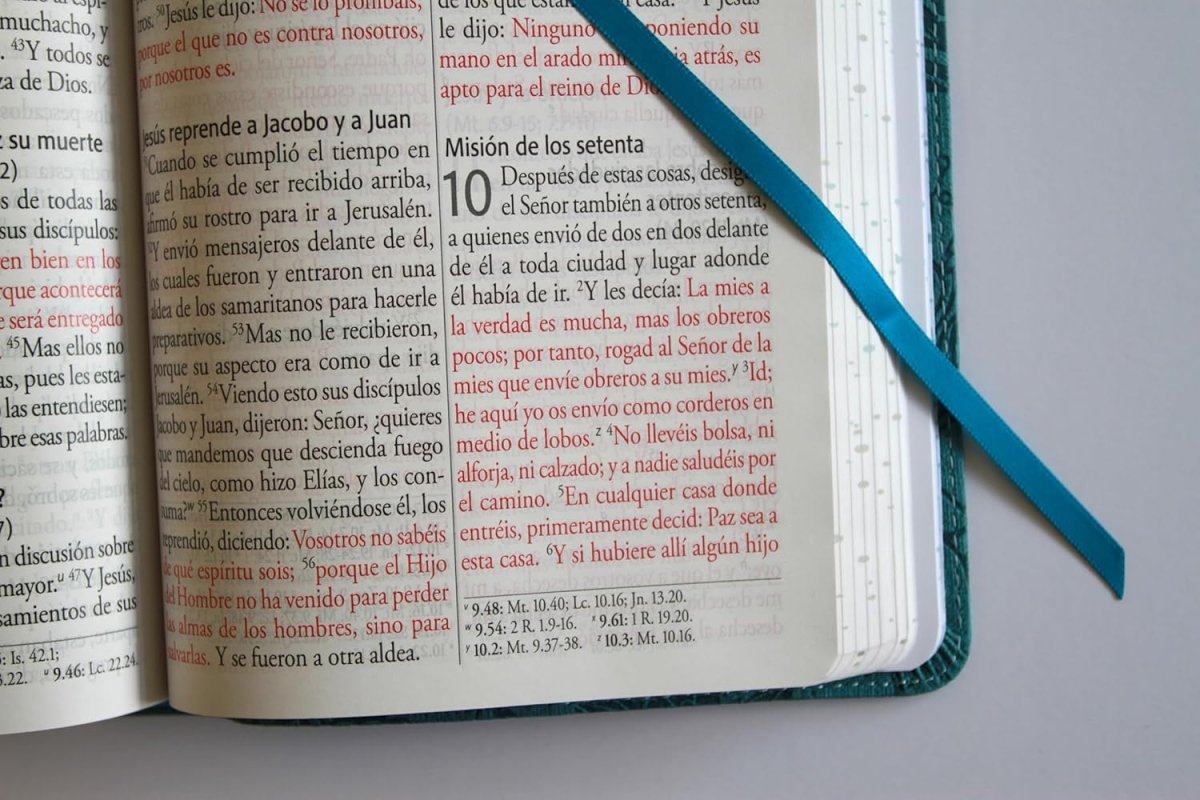 muchacho, y
43Y todos se
za de Dios.
su muerte
2)
s de todas las
sus discípulos:
en bien en los
rque acontecerá
e será entregado
45Mas ellos no
as, pues les esta-
las entendiesen;
bre esas palabras.
?
7)
n discusión sobre
mayor.u 47Y Jesús,
samientos de sus
: Is. 42.1;
3.22. u 9.46: Lc. 22.24.
tros. 50Jesús le dijo: No se lo prohibáis,
porque el que no es contra nosotros,
por nosotros es.
Jesús reprende a Jacobo y a Juan
Cuando se cumplió el tiempo en
que él había de ser recibido arriba,
afirmó su rostro para ir a Jerusalén.
Y envió mensajeros delante de él,
los cuales fueron y entraron en una
aldea de los samaritanos para hacerle
preparativos. 53Mas no le recibieron,
porque su aspecto era como de ir a
Jerusalén. 54Viendo esto sus discípulos
Jacobo y Juan, dijeron: Señor, ¿quieres
que mandemos que descienda fuego
del cielo, como hizo Elías, y los con-
suma?w 55Entonces volviéndose él, los
reprendió, diciendo: Vosotros no sabéis
de qué espíritu sois; 56porque el Hijo
del Hombre no ha venido para perder
las almas de los hombres, sino para
salvarlas. Y se fueron a otra aldea.
de los que están casa. Y Jesús
le dijo: Ninguno poniendo su
mano en el arado mi a atrás, es
apto para el reino de Dio
Misión de los setenta
10 Después de estas cosas, desig
el Señor también a otros setenta,
a quienes envió de dos en dos delante
de él a toda ciudad y lugar adonde
él había de ir. 2Y les decía: La mies a
la verdad es mucha, mas los obreros
pocos; por tanto, rogad al Señor de la
mies que envíe obreros a su mies.y 3Id;
he aquí yo os envío como corderos en
medio de lobos.z 4No llevéis bolsa, ni
alforja, ni calzado; y a nadie saludéis por
el camino. 5En cualquier casa donde
entréis, primeramente decid: Paz sea a
esta casa. 6Y si hubiere allí algún hijo
v 9.48: Mt. 10.40; Lc. 10.16; Jn. 13.20.
w 9.54: 2 R. 1.9-16. x 9.61: 1 R. 19.20.
y 10.2: Mt. 9.37-38. z 10.3: Mt. 10.16.